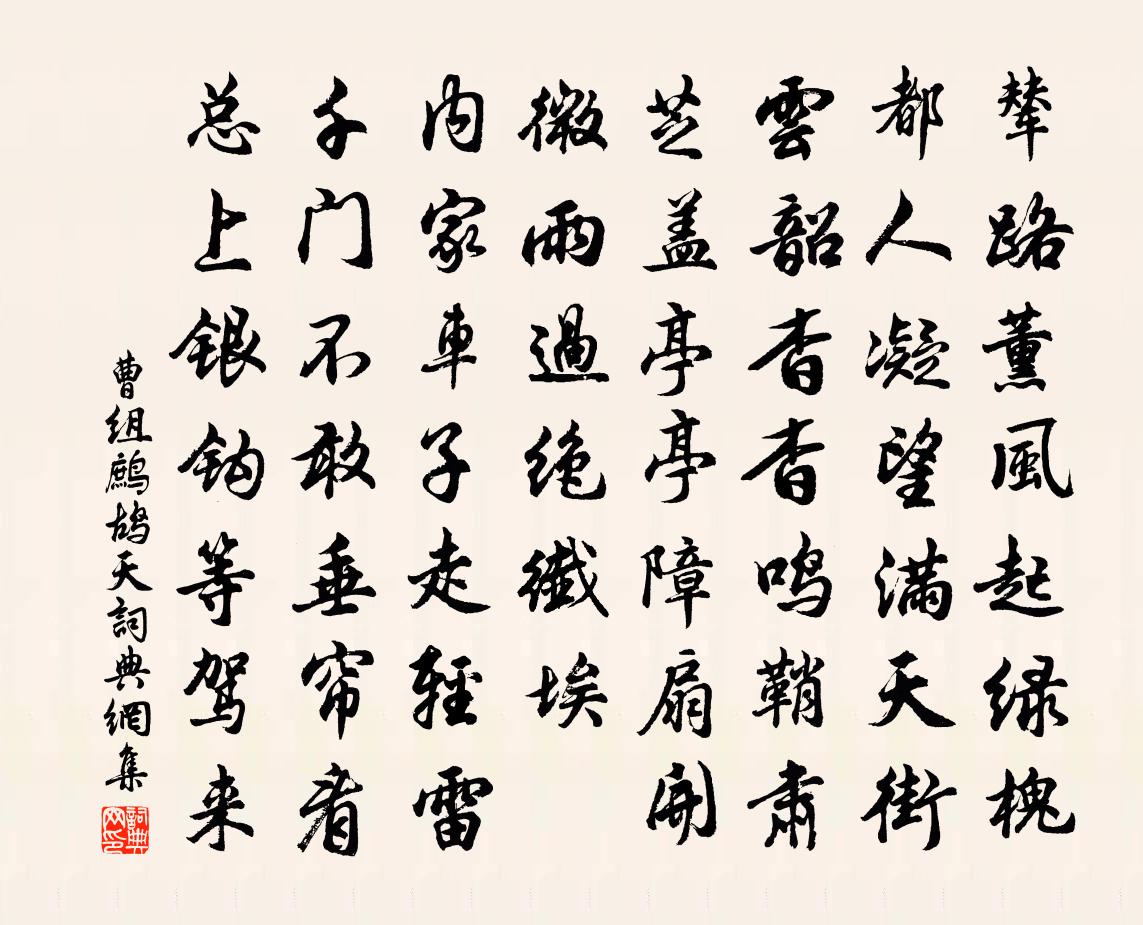 辇路薰風起绿槐
都人凝望满天街
雲韶杳杳鸣鞘肃
芝盖亭亭障扇開
微雨過绝纖埃
内家車子走輕雷
千门不敢垂帘看
总上银钩等驾来
曹组鷓鸪天詞典網集
詞典网印